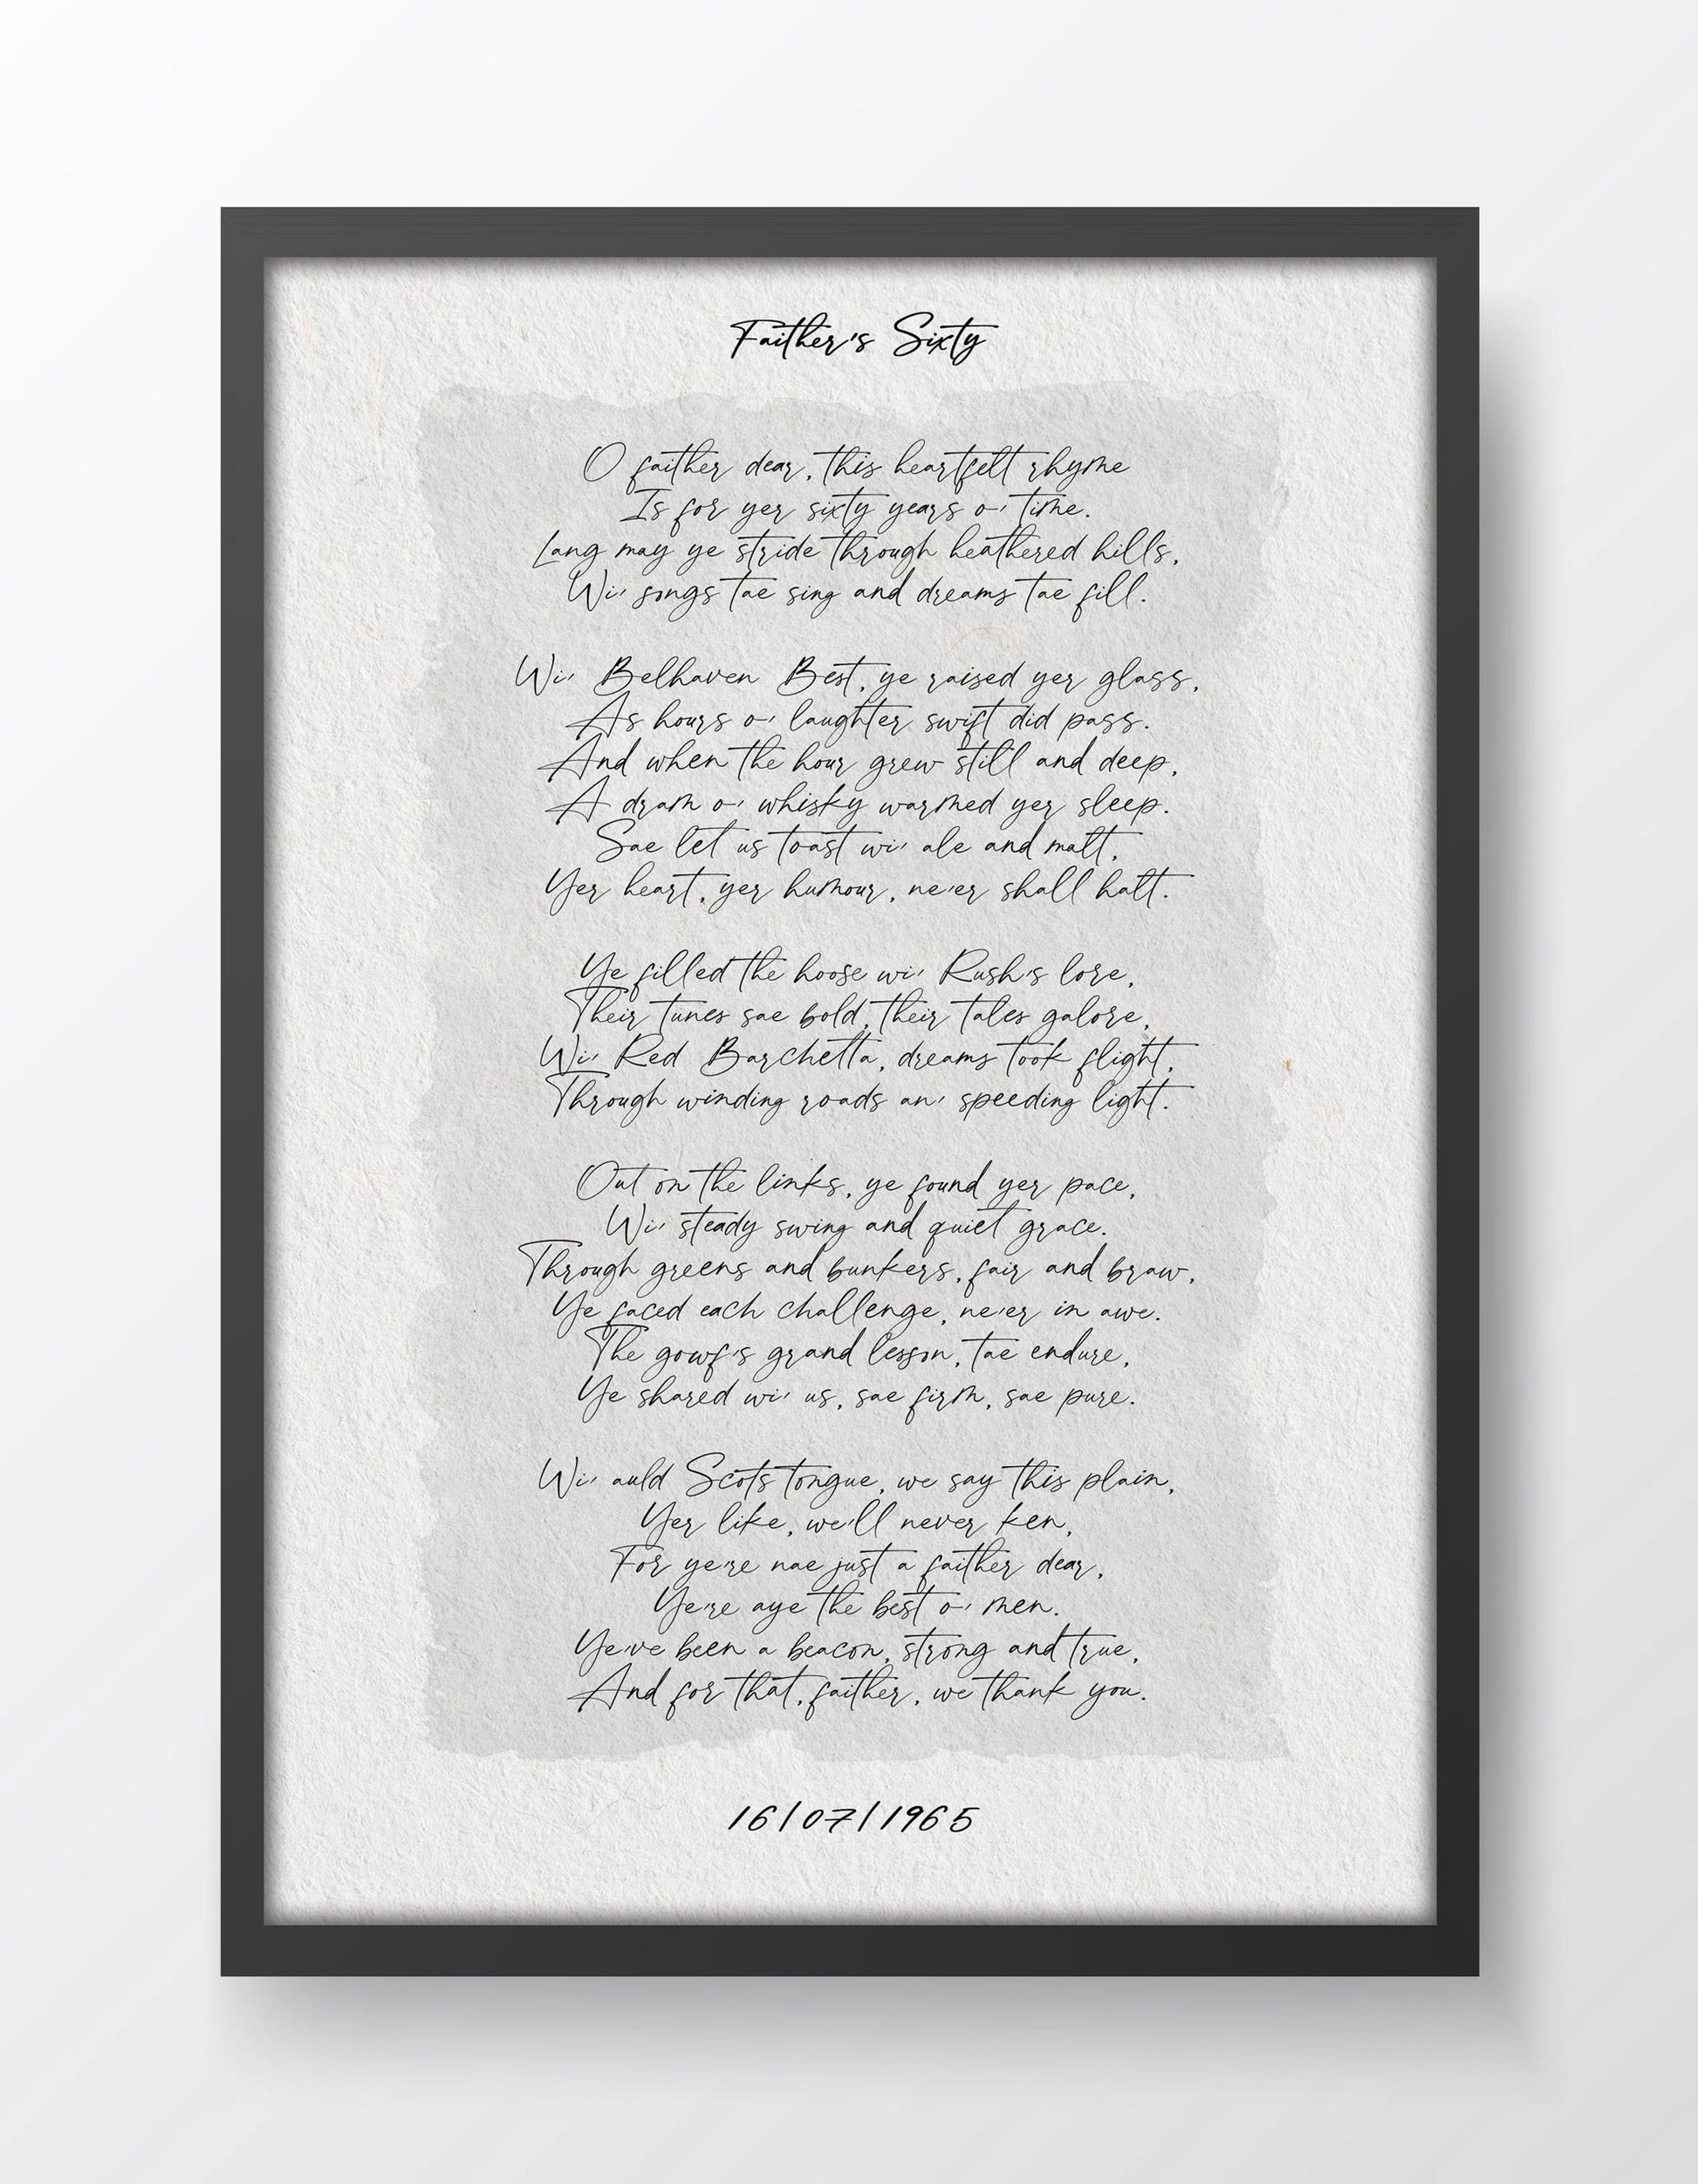 Faither's Sixty
O faither dear, this heartfelt rhyme
Is for yer sixty years o' time.
Lang may ye stride through heathered hills,
Wi' songs tae sing and dreams tae fill.
Wi' Belhaven Best, ye raised yer glass,
As hours o' laughter swift did pass.
And when the hour grew still and deep,
A dram o' whisky warmed yer sleep.
Sae let us toast wi' ale and malt,
Yer heart, yer humour, ne'er shall halt.
Ye filled the hoose wi' Rush's lore,
Their tunes sae bold, their tales galore,
Wi' Red Barchetta, dreams took flight,
Through winding roads an' speeding light.
Out on the links, ye found yer pace,
Wi' steady swing and quiet grace.
Through greens and bunkers, fair and braw,
Ye faced each challenge, ne'er in awe.
The gowf's grand lesson, tae endure,
Ye shared wi' us, sae firm, sae pure.
Wi' auld Scots tongue, we say this plain,
Yer like, we'll never ken,
For ye're nae just a faither dear,
Ye're aye the best o' men.
Ye've been a beacon, strong and true,
And for that, faither, we thank you.
16/07/1965